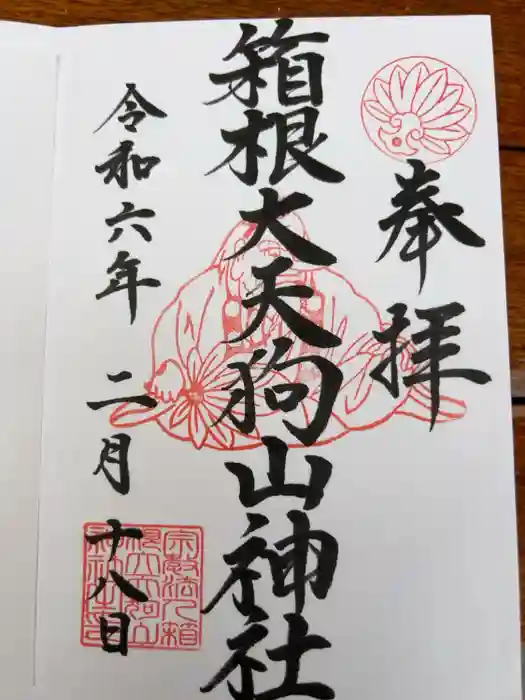 奉拝
箱根大天狗山神社
令和六年二月十八日